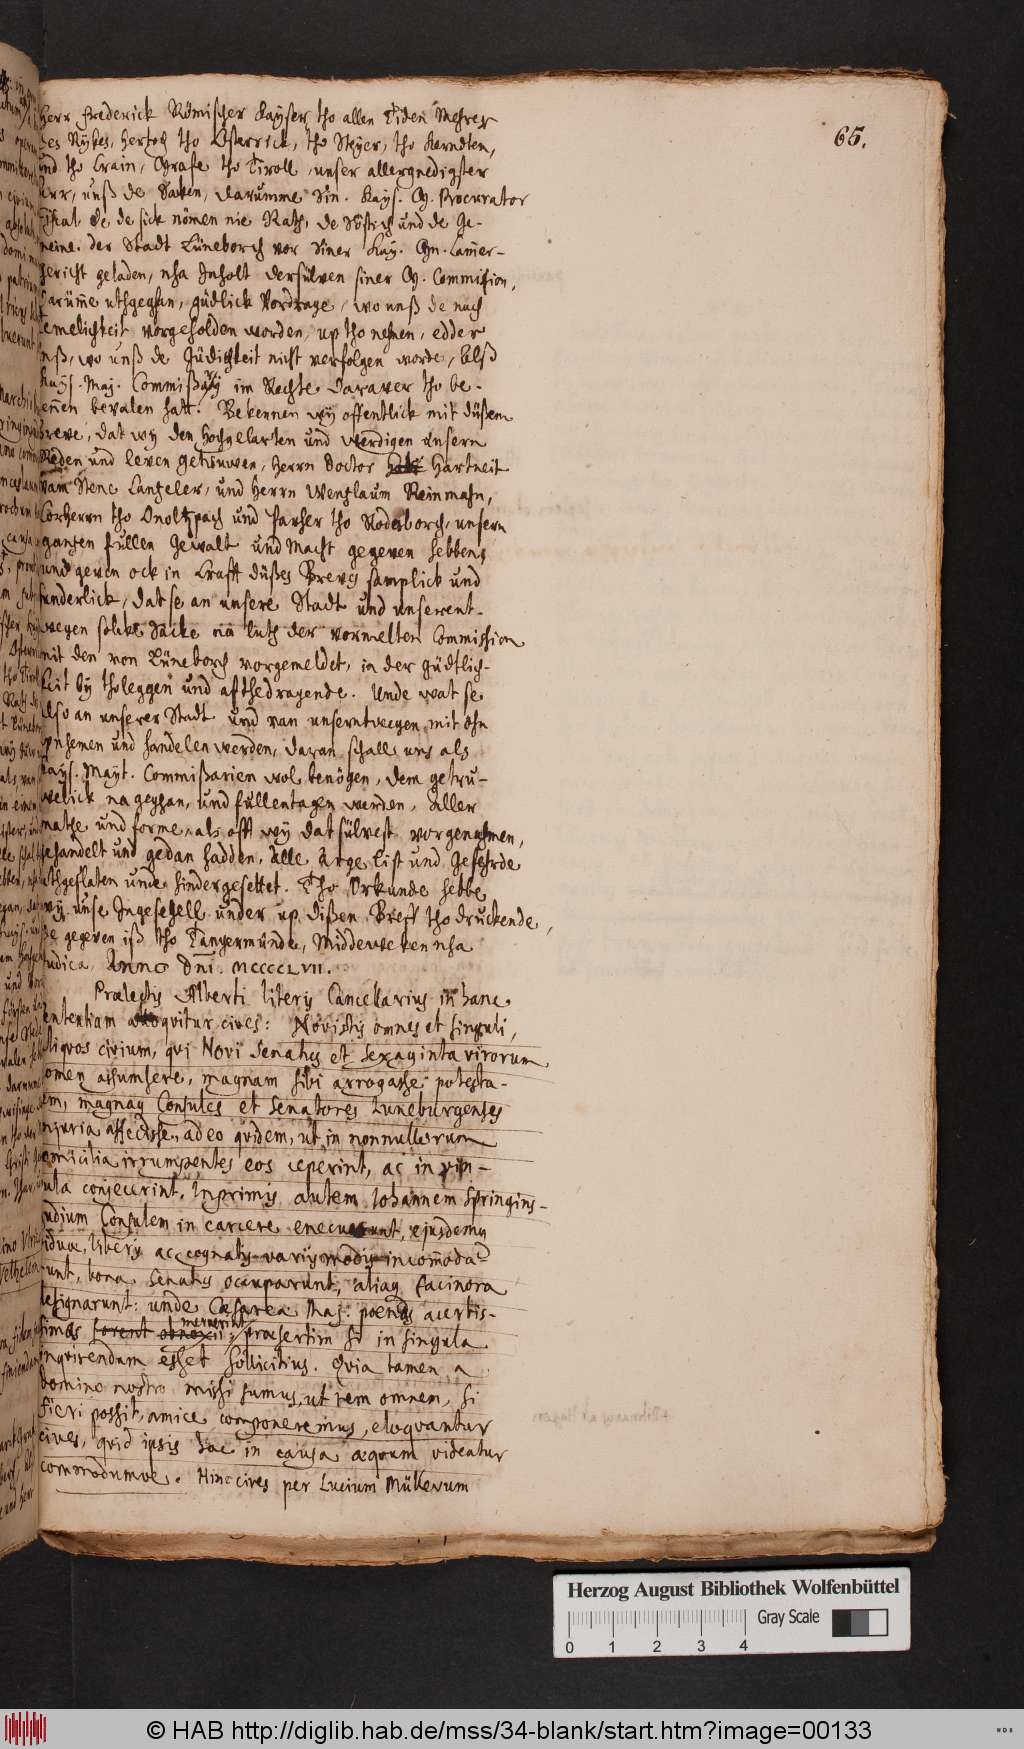 65.
Herr Frederick Römischer Kayser, tho allen Tiden Mehrer
des Rykes, Hertoch tho Osterrick, tho Styer, tho Kerndten,
und tho Crain, Grafe tho Tiroll, unser allergnedigster
Herr, unß de Saken, darumme Sin. Kays. G. Procurator
Fiscal de de sick nömen nie Rath, de Söstich und de Ge-
meine. der Stadt Lüneborch vor Siner Kay. Gn. Camer-
gericht geladen, nha Inholt dersülven siner G. Commission,
darüme uthgeghan, güdlick Vordrage, wo unß de nach
temelichkeit vorgeholden worden, up tho nehmen, edder
unß, wo unß de Güdichkeit nicht verfolgen worde, Alß
Kays. Maj. Commissary im Rechte daraver tho be-
kennen bevalen hatt. Bekennen wy offentlick mit düßem
breve, dat wy den Hochgelarten und werdigen unsern
Reden und leven getruwen, Herrn Doctor Hartneit
vam Stene Cantzeler, und Herrn Wentzlaum Reinmahn,
Corherrn tho Onoltzpach und Parher tho Roderborch, unsern
gantzen fullen Gewalt und Macht gegeven hebben,
und geven ock in Crafft düßes Breves samplick und
sunderlick, dat se an unsere Stadt und unserent-
wegen solcke Sacke na luth der vormelten Commission
mit den von Lüneborch vorgemeldet, in der güdtlich-
keit by tholeggen und afthedragende. Unde wat se
also an unserer Stadt und van unserntwegen mit ohn
vornhemen und handelen werden, daran schall uns als
Kays. Mayt. Commißarien wol benögen, dem getru-
welick na geghan, und fullentagen werden, Aller
mathe und forme, als offt wy dat sülvest vorgenahmen,
gehandelt und gedan hadden, Alle Arge list und Gefehrde
uthgeslaten unde hindergesettet. Tho Orkunde hebbe
wy unse Ingesegell under up dißen Breff tho druckende,
De gegeven iß tho Tangermünde, Middeweken nha
Judica Anno Dni. MCCCCLVII.
Prælectis Alberti literis Cancellarius in hanc
sententiam alloqvitur cives: Novistis omnes et singuli,
aliqvos civium, qvi Novi Senatus et Sexaginta virorum
nomen assumsere, magnam sibi arrogasse potesta-
tem, magnaq Consules et Senatores Luneburgenses
injuria affecisse, adeo qvidem, ut in nonnullorum
domicilia irrumpentes eos ceperint, ac in vin-
cula conjecerint. Inprimis autem Iohannem Springins-
gudium Consulem in carcere enecuerunt, ejusdemq
viduæ, liberis ac cognatis variis modis incommoda-
runt, bona Senatus occuparunt, aliaq facinora
designarunt: unde Cæsareæ Maj. poenas acerbis-
simas forent obnoxii meruerint: præsertim si in singula
inqvirendum esset sollicitius. Qvia tamen a
Domino nostro missi sumus, ut rem omnem, si
fieri possit, amice componeremus, eloqvantur
cives, qvid ipsis hac in causa æqvum videatur
commodumve. Hinc cives per Lucium Müllerum
Herzog August Bibliothek Wolfenbüttel
Gray Scale
0 1 2 3 4
© HAB http://diglib.hab.de/mss/34-blank/start.htm?image=00133